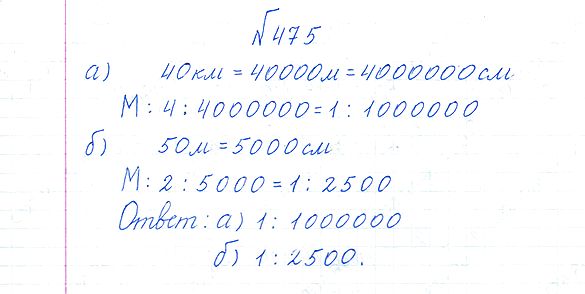 №475
а) 40км = 40000м = 4000000см
М: 4 : 4000000 = 1 : 1000000
б) 50м = 5000см
М: 2 : 5000 = 1 : 2500
Ответ: а) 1 : 1000000
б) 1 : 2500.